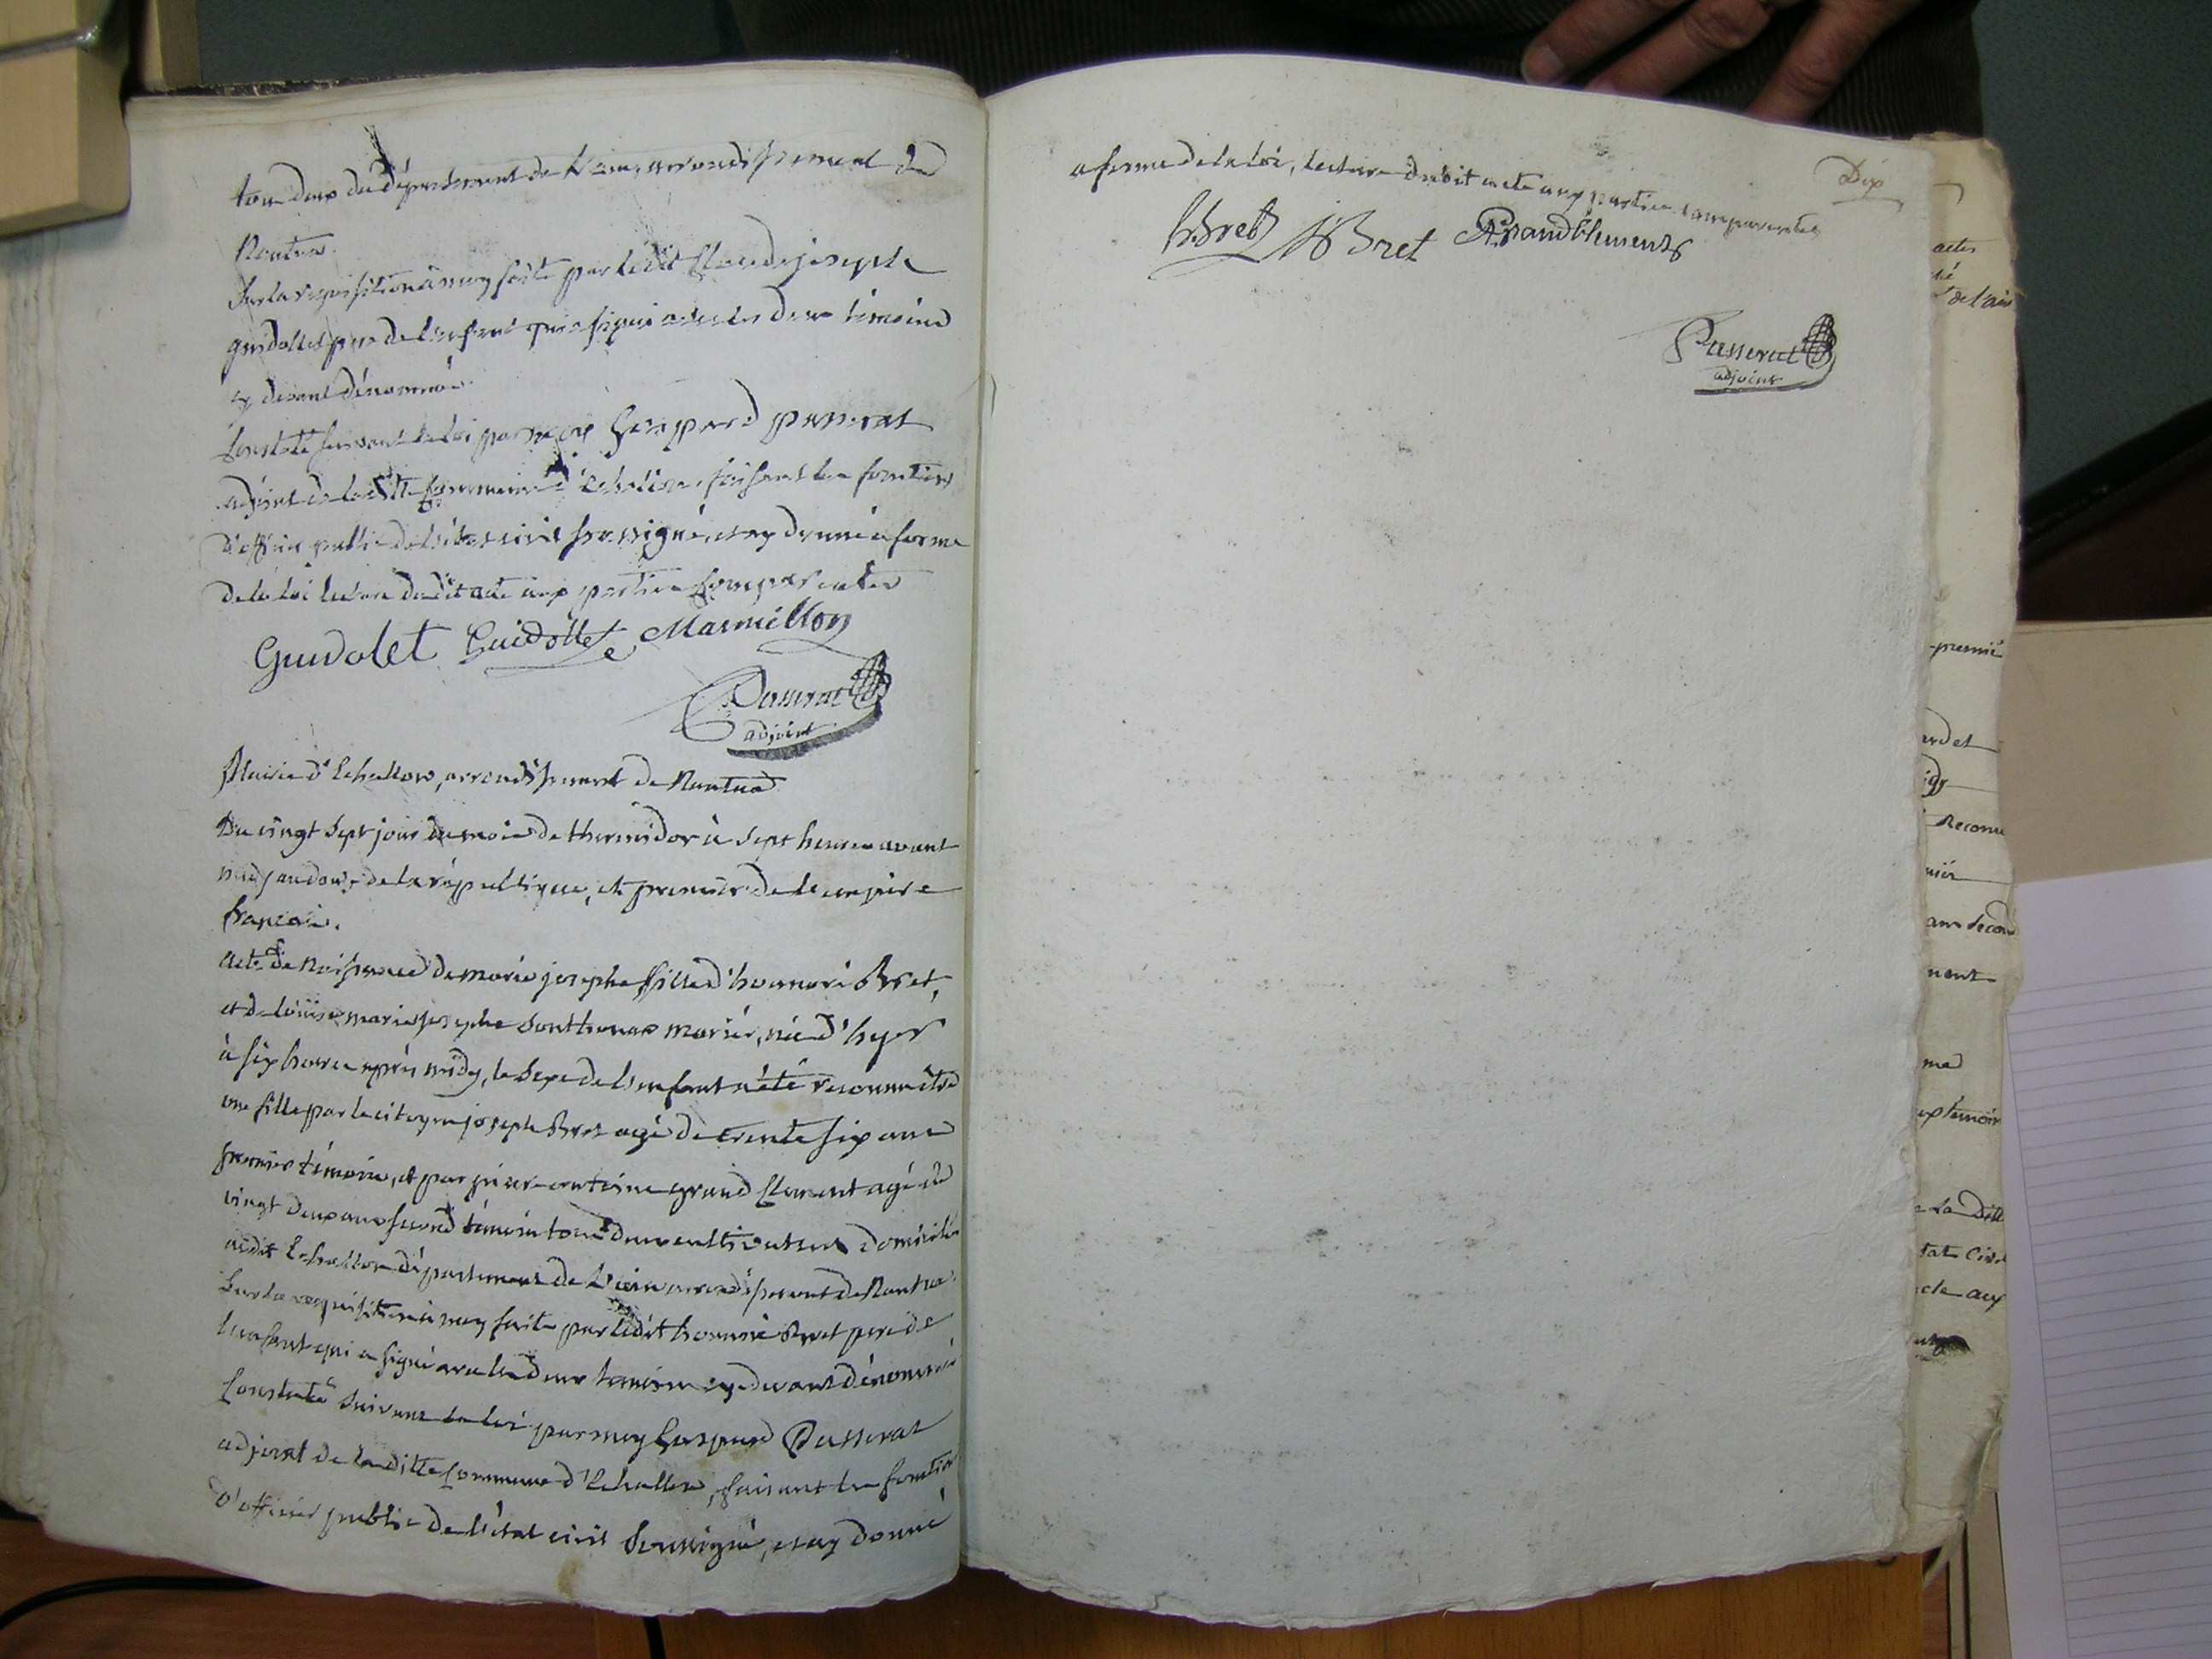 tou deux du département de l'ain, arrondissement de
Nantua.
Sur la requisition à moy faite par ledit Claude joseph
guidollet pere de l'enfant qui a signé avec les deux témoins
cy devant dénommé
Constaté suivant la loi par moy Gaspard passerat
adjoint de laditte Commune d'Echallon, faisant les fonction
d'officier public de l'état civil soussigné, et ay donné a forme
de la loi lecture dudit acte aux parties comparentes
Guidolet Guidollet Marmillon
Passerat
adjoint
Mairie d'Echallon, arrondissement de Nantua
Du vingt sept jour du mois de thermidor à sept heures avant
midy an douze de la république, et premier de l'empire
francais.
acte de Naissance de marie josephe fille d'honnoré Bret,
et de louise marie josephe Sonthonax mariés, née d'hyer
à six heures après midy, le sexe de l'enfant a été reconnu être
une fille par le citoyen joseph Bret agé de trente six ans
premier témoin, et par pierre antoine grand Clement agé de
vingt deux ans second témoin tous deux cultivateurs domiciliés
audit Echallon département de l'ain arrondissement de Nantua.
Sur la requisition à moy faite par ledit honnoré Bret pere de
l'enfant qui a signé avec les deux temoins cy devant dénommé
Constaté suivant la loi par moy Gaspard Passerat
adjoint de laditte Commune d'Echallon, faisant les fonction
d'officier public de l'état civil Soussigné, et ay donné
Dix
a forme de la loi, lecture dudit acte aux parties comparentes
h. Bret J Bret PA grand Clement
Passerat
adjoint
actes
de l'ain
premié
ardet
Reconu
mier
ans second
ment
temoin
La ditte
tat Civil
cte aux